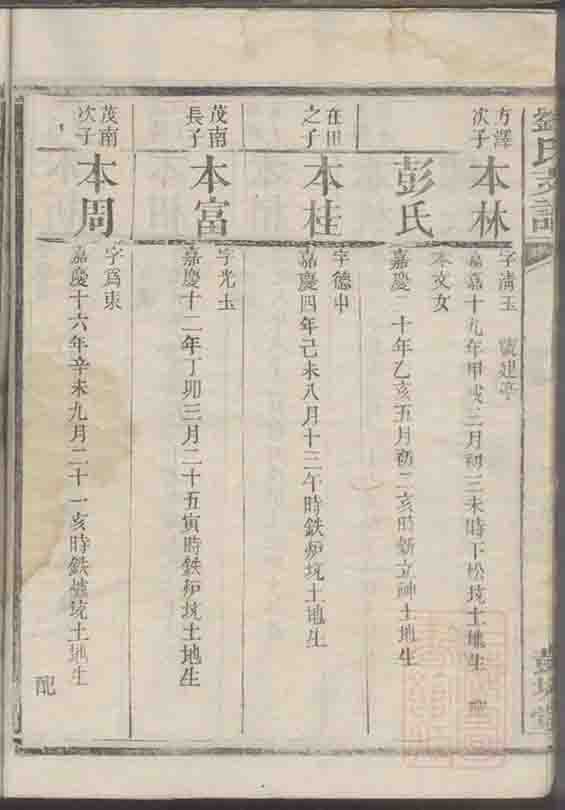 方澤
次子
本林
字清玉 號建亭
嘉慶十九年甲戌三月初三未時下松坑土地生 配
彭氏
本文女
嘉慶二十年乙亥五月初二亥時新立神土地生
在田
之子
本桂
字德中
嘉慶四年己未八月十三午時鉄炉坑土地生
茂南
長子
本富
字光玉
嘉慶十二年丁卯三月二十五寅時鉄炉坑土地生
茂南
次子
本周
字爲東
嘉慶十六年辛未九月二十一亥時鉄爐坑土地生
配